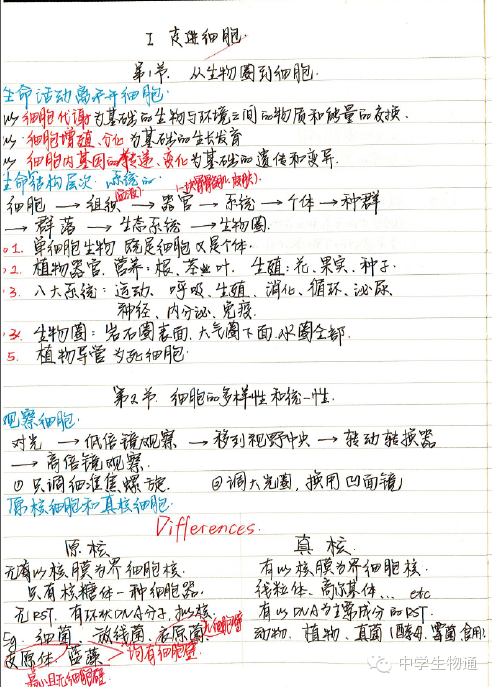 I 走进细胞.
第1节. 从生物圈到细胞.
生命活动离不开细胞.
以 细胞代谢为基础的生物与环境之间的物质和能量的交换.
以 细胞增殖、分化为基础的生长发育
以 细胞内基因的传递、变化为基础的遗传和变异.
生命结构层次
细胞 → 组织 → 器官 → 系统 → 个体 → 种群
→ 群落 → 生态系统 → 生物圈.
1. 单细胞生物 既是细胞又是个体.
2. 植物器官. 营养: 根、茎、叶. 生殖: 花、果实、种子.
3. 八大系统: 运动、呼吸、生殖、消化、循环、泌尿、
神经、内分泌、免疫.
生物圈: 岩石圈表面、大气圈下面、水圈全部.
5. 植物导管为死细胞.
第2节. 细胞的多样性和统一性.
观察细胞.
对光 → 低倍镜观察 → 移到视野中央 → 转动转换器
→ 高倍镜观察.
① 只调细准焦螺旋. ② 调大光圈, 换用凹面镜
原核细胞和真核细胞.
Differences.
原核 真核.
无有以核膜为界细胞核. 有以核膜为界细胞核.
只有核糖体一种细胞器. 线粒体、高尔基体… etc
无RST, 有环状DNA分子, 拟核. 有以DNA为主要成分的RST.
Eg. 细菌、放线菌、支原菌 无细胞壁 动物、植物、真菌(酵母、霉菌、食用)
衣原体、蓝藻. 均有细胞壁
最小且无细胞壁
中学生物通